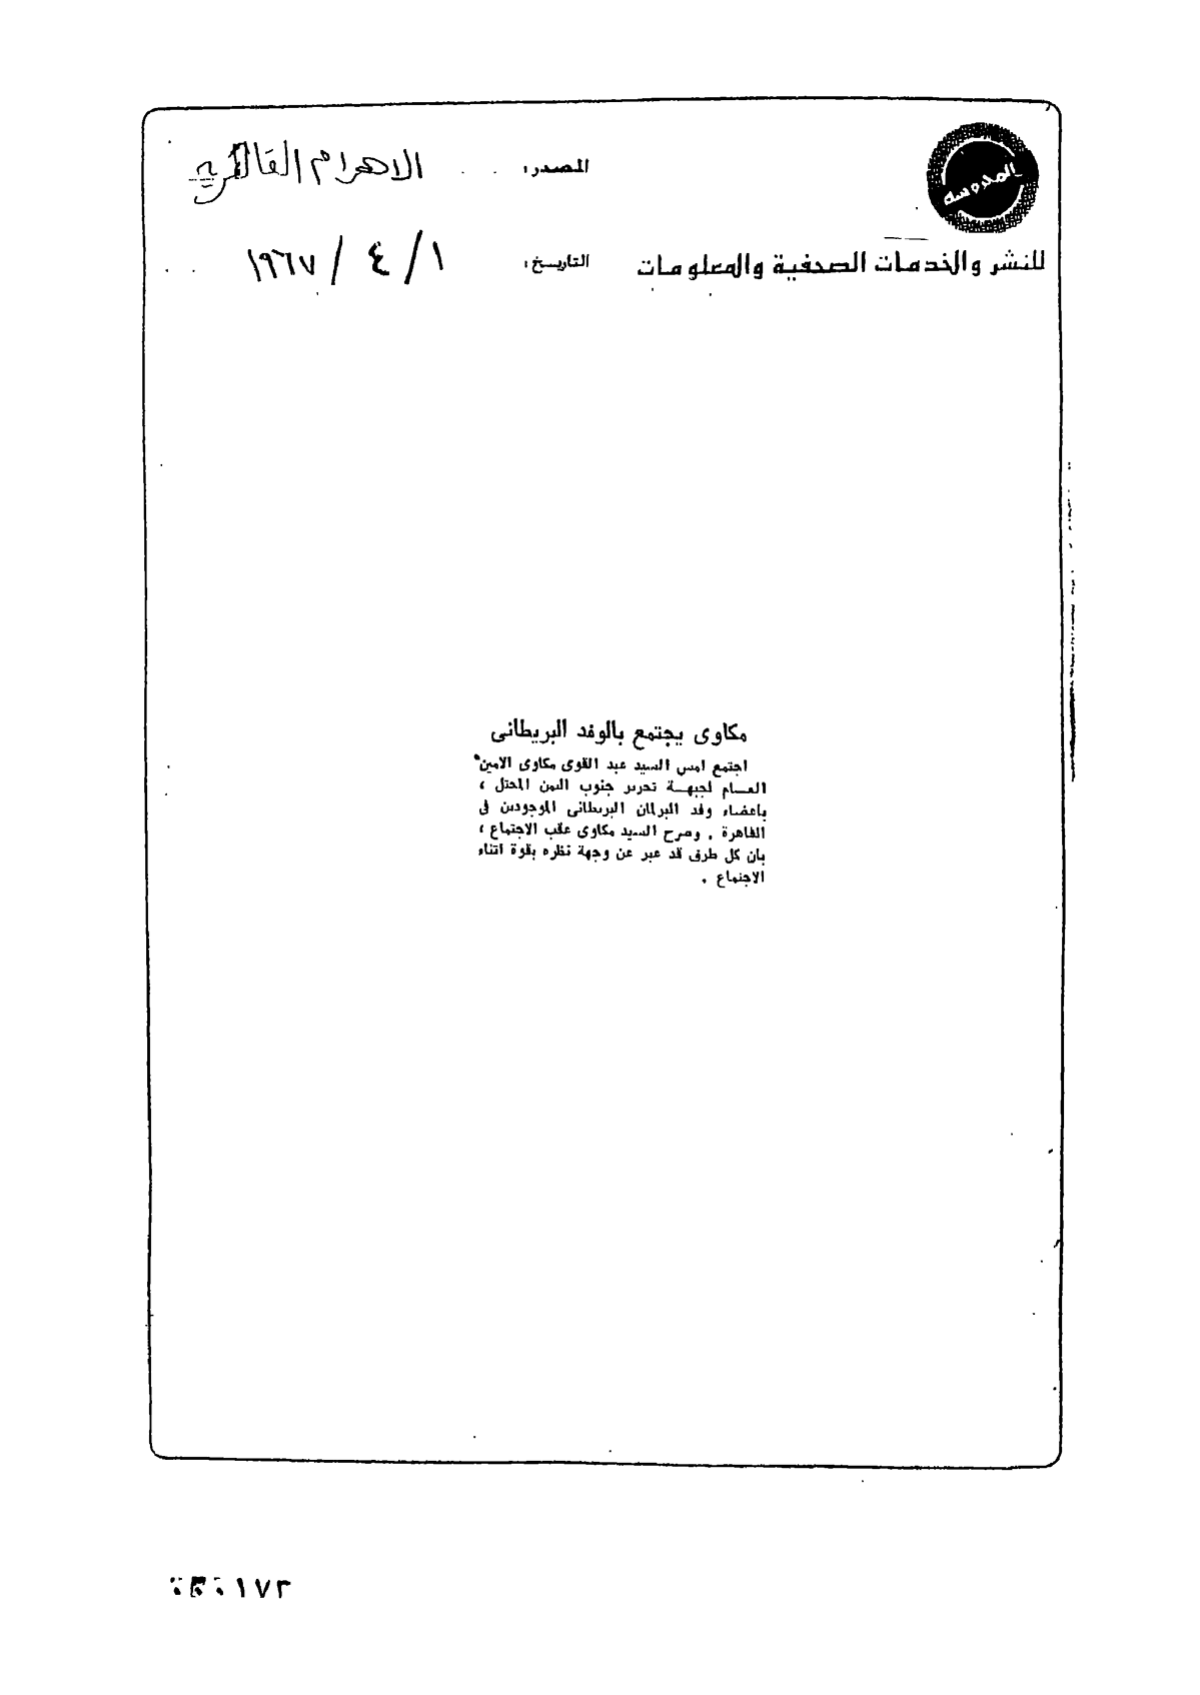 المحروسة
المصدر: الاهرام القاهرية
للنشر والخدمات الصحفية والمعلومات
التاريخ: ١ / ٤ / ١٩٦٧
مكاوى يجتمع بالوفد البريطانى
اجتمع امس السيد عبد القوى مكاوى الامين
العام لجبهة تحرير جنوب اليمن المحتل ،
باعضاء وفد البرلمان البريطانى الموجودين فى
القاهرة . وصرح السيد مكاوى عقب الاجتماع ،
بان كل طرف قد عبر عن وجهة نظره بقوة اثناء
الاجتماع .
١٧٣